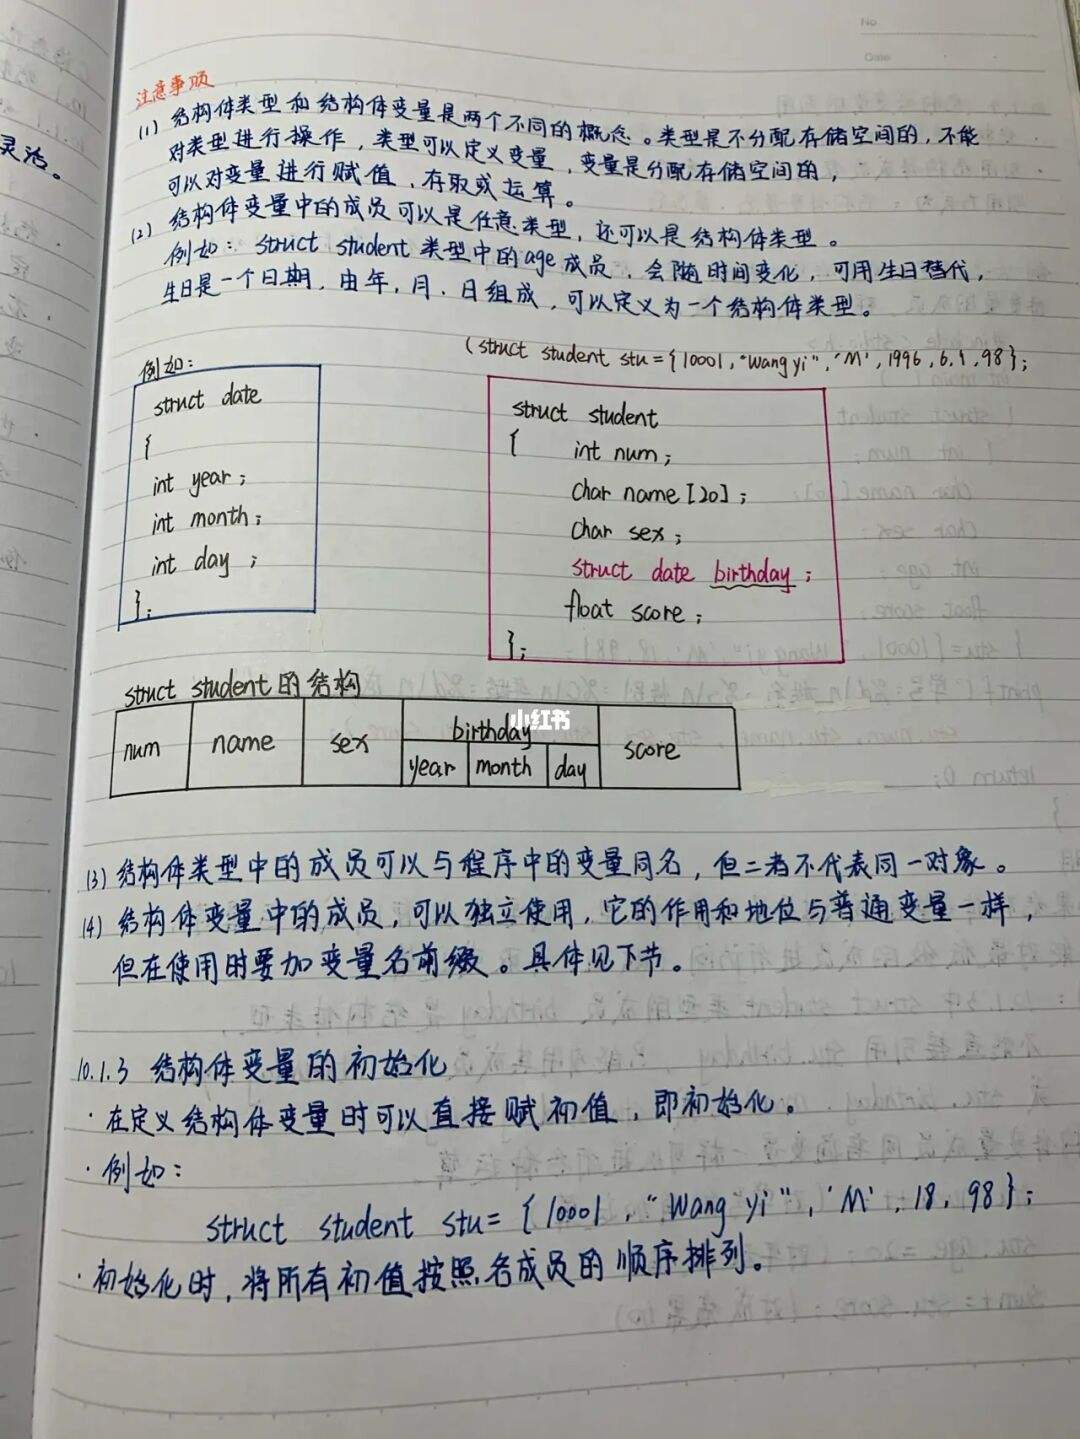 No
Date
注意事项
(1) 结构体类型和结构体变量是两个不同的概念。类型是不分配存储空间的,不能
对类型进行操作,类型可以定义变量,变量是分配存储空间的,
可以对变量进行赋值、存取或运算。
(2) 结构体变量中的成员可以是任意类型,还可以是结构体类型。
例如: struct student 类型中的age成员,会随时间变化,可用生日替代,
生日是一个日期,由年,月,日组成,可以定义为一个结构体类型。
例如:
(struct student stu={10001,"Wang yi",'M',1996,6,1,98};
struct date
{
int year;
int month;
int day;
};
struct student
{ int num;
char name[20];
char sex;
struct date birthday;
float score;
};
struct student的结构
num name sex birthday score
year month day
小红书
(3) 结构体类型中的成员可以与程序中的变量同名,但二者不代表同一对象。
(4) 结构体变量中的成员,可以独立使用,它的作用和地位与普通变量一样,
但在使用时要加变量名前缀。具体见下节。
10.1.3 结构体变量的初始化
·在定义结构体变量时可以直接赋初值,即初始化。
·例如:
struct student stu={10001,"Wang yi",'M',18,98};
·初始化时,将所有初值按照各成员的顺序排列。
灵活。